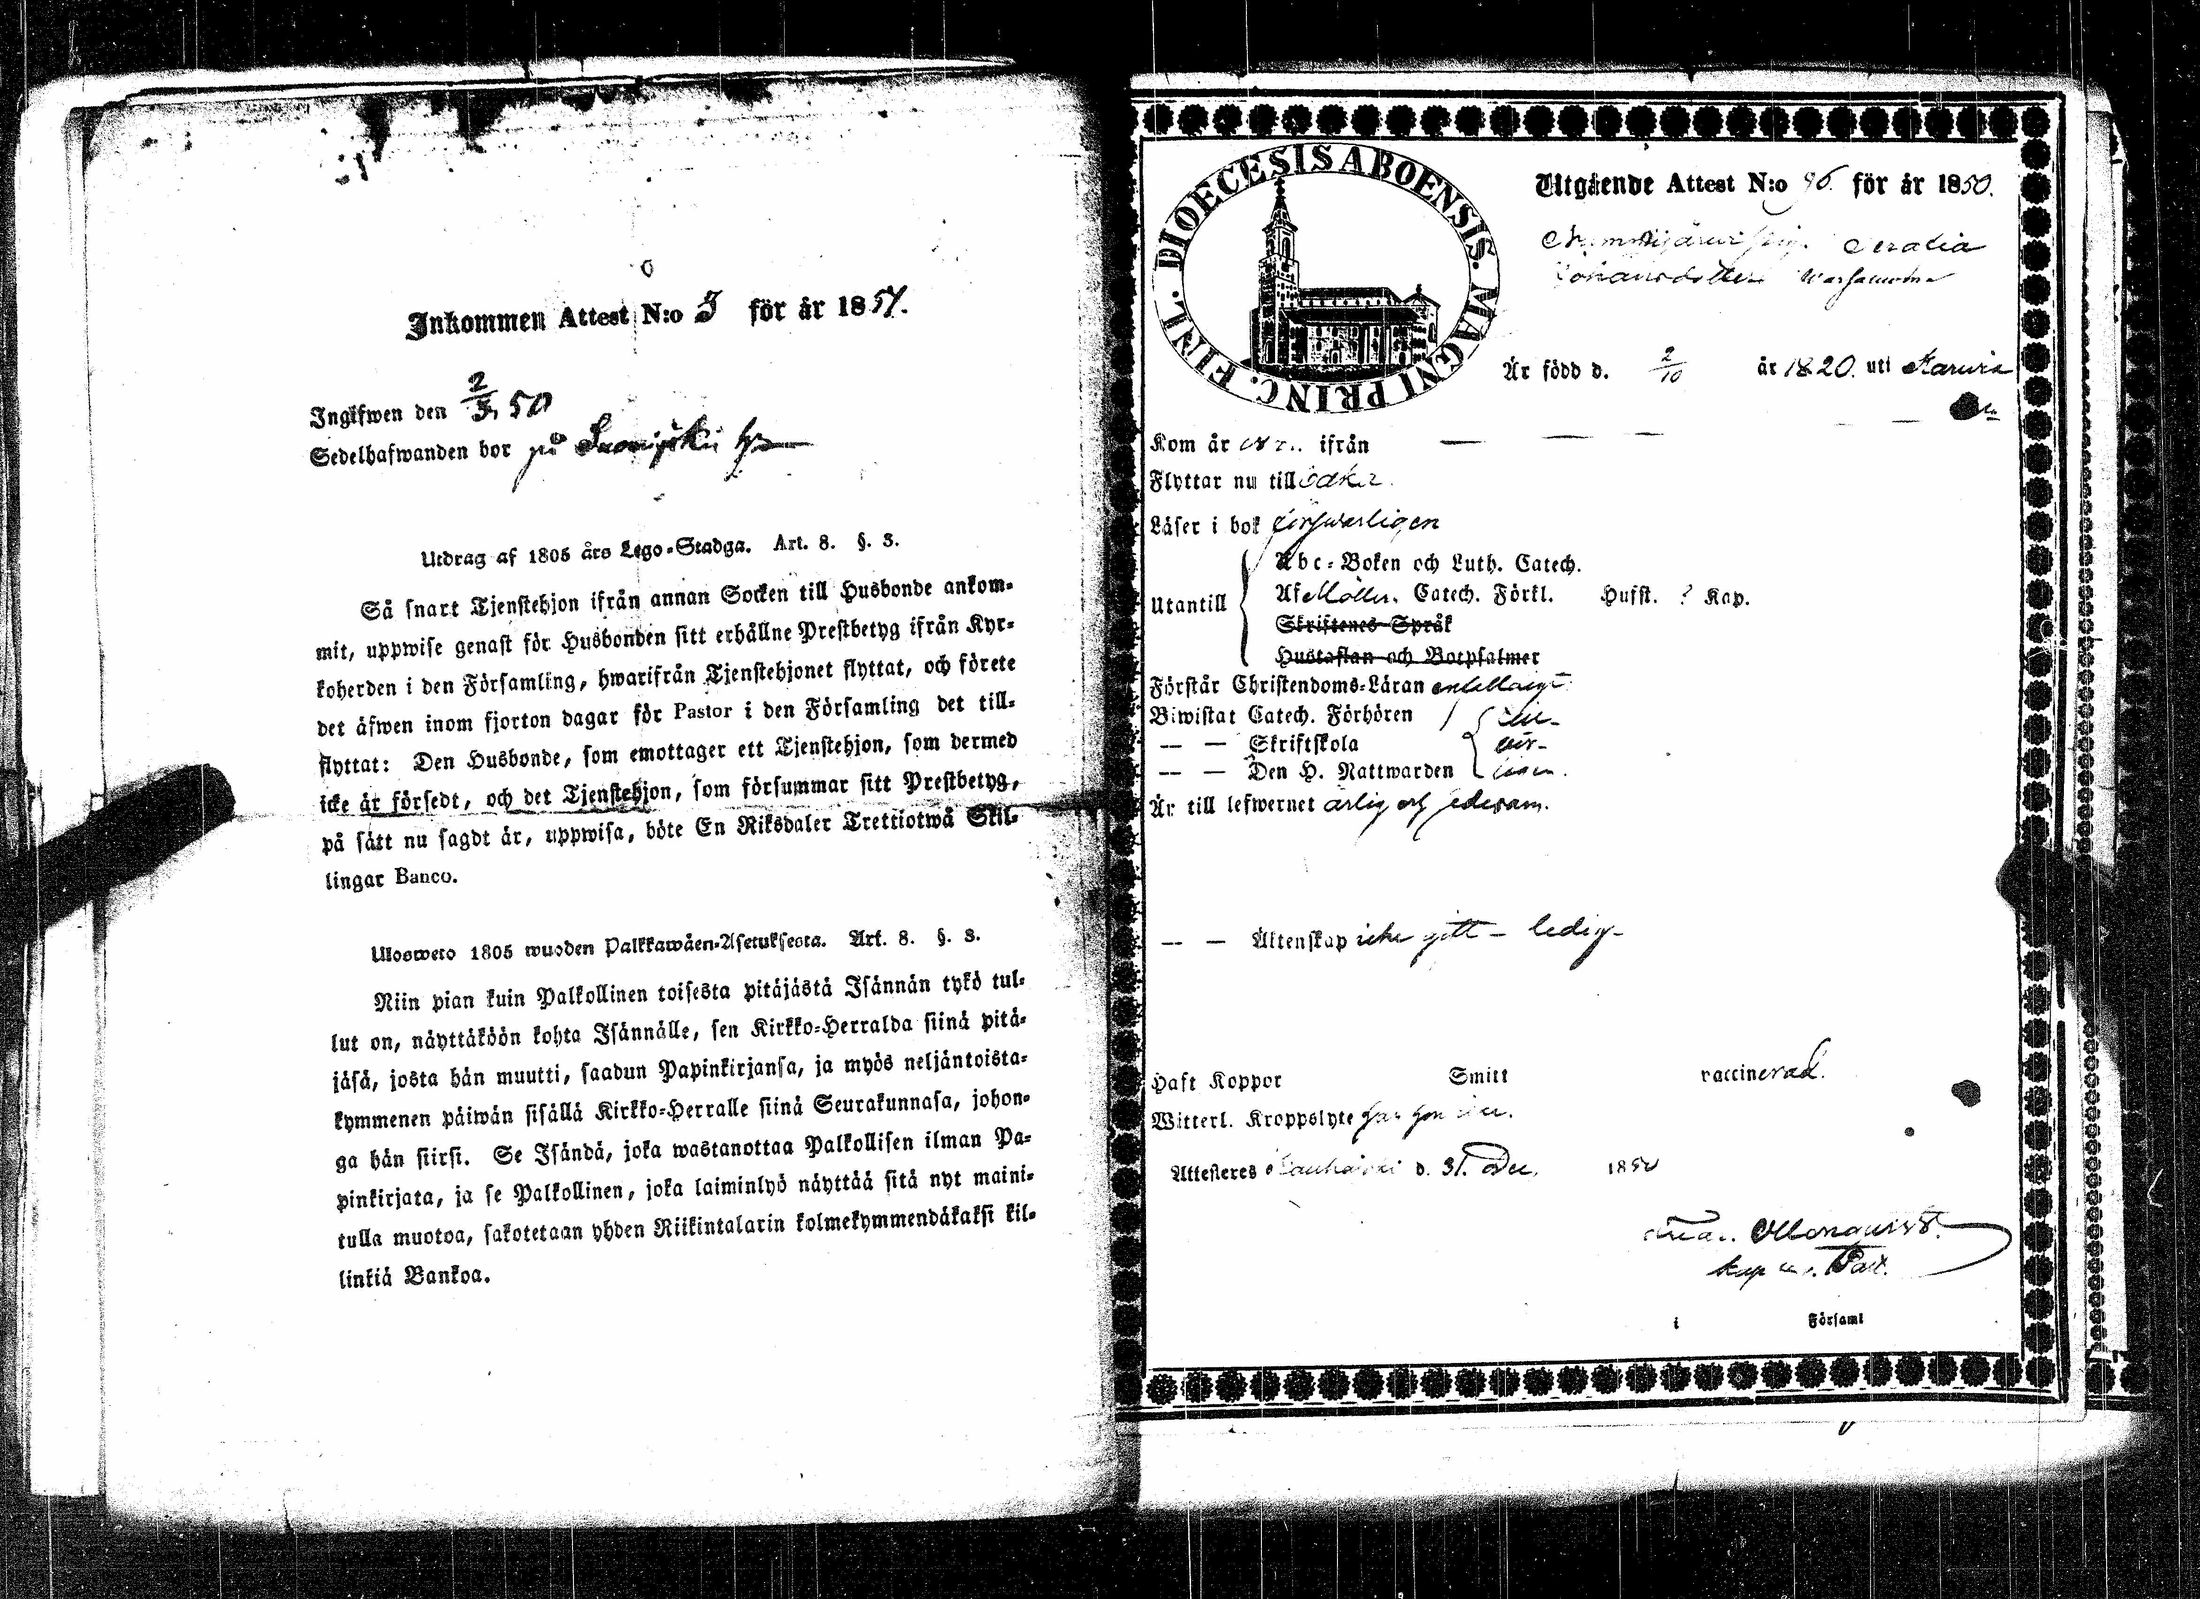 Inkommen Attest N:o 3 för år 185
Ingifwen den 2/3 50
Sedelhafwanden bor på
Utdrag af 1805 års Lego-Stadga. Art. 8. §. 3.
Så snart Tjenstehjon ifrån annan Socken till Husbonde ankom-
mit, uppwise genast för Husbonden sitt erhållne Prestbetyg ifrån Kyr-
koherden i den Församling, hwarifrån Tjenstehjonet flyttat, och förete
det äfwen inom fjorton dagar för Pastor i den Församling det till-
flyttat: Den Husbonde, som emottager ett Tjenstehjon, som dermed
icke är försedt, och det Tjenstehjon, som försummar sitt Prestbetyg,
på sätt nu sagdt är, uppwisa, böte En Riksdaler Trettiotwå Skil-
lingar Banco.
Ulosweto 1805 wuoden Palkkawäen-Asetuksesta. Art. 8. §. 3.
Niin pian kuin Palkollinen toisesta pitäjästä Isännän tykö tul-
lut on, näyttäköön kohta Isännälle, sen Kirkko-Herralda siinä pitä-
jäsä, josta hän muutti, saadun Papinkirjansa, ja myös neljäntoista-
kymmenen päiwän sisällä Kirkko-Herralle siinä Seurakunnasa, johon-
ga hän siirsi. Se Isändä, joka wastanottaa Palkollisen ilman Pa-
pinkirjata, ja se Palkollinen, joka laiminlyö näyttää sitä nyt maini-
tulla muotoa, sakotetaan yhden Riikintalarin kolmekymmendäkaksi kil-
linkiä Bankoa.
DIOECESIS ABOENSIS. MAGNI PRINC. FINL.
Utgående Attest N:o 96. för år 1850.
Johansdotter
Är född d. 2/10 år 1820. uti Karvia
Kom år ifrån
Flyttar nu till
Läser i bok förswarligen
Utantill
Abc-Boken och Luth. Catech.
Af Möllers Catech. Förkl. Hufst. ? Kap.
Skriftenes Språk
Hustaflan och Botpsalmer
Förstår Christendoms-Läran enfaldigt
Biwistat Catech. Förhören
— — Skriftskola
— — Den H. Nattwarden
Är till lefwernet ärlig och
— — Äktenskap icke gift – ledig –
Haft Koppor Smitt vaccinerad.
Witterl. Kroppslyte har hon
Attesteres d. 31. Dec. 1850
i Församl